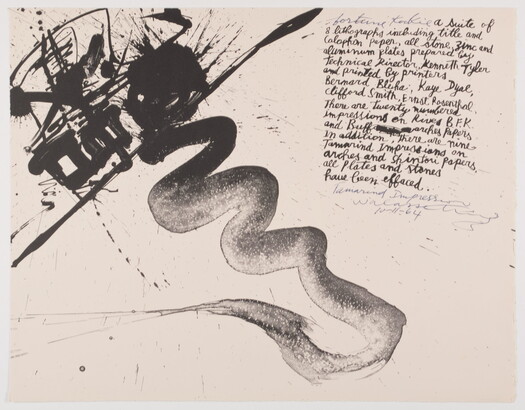 a suite of
8 lithographs including title and
Colophon paper., all stone, Zinc and
aluminum plates prepared by
Technical Director, Kenneth Tyler
and printed by printers
Bernard Bleha, Kaye Dyal,
Clifford Smith, Ernst Rosenthal
There are twenty numbered
impressions on Rives B.F.K.
and Buff arches Papers
In addition, There are nine
Tamarind Impressions on
arches and Shinton papers
all Plates and Stones
have been effaced.
Tamarind Impression